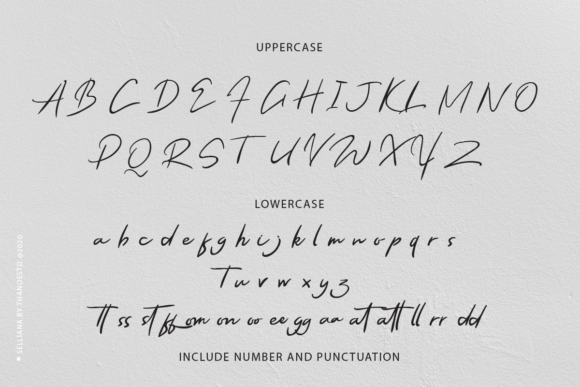 UPPERCASE
A B C D E F G H I J K L M N O
P Q R S T U V W X Y Z
LOWERCASE
a b c d e f g h i j k l m n o p q r s
T u v w x y z
tt ss st ff om on oo ee gg aa at att ll rr dd
INCLUDE NUMBER AND PUNCTUATION
SELLIANA BY THANOESTD @2020